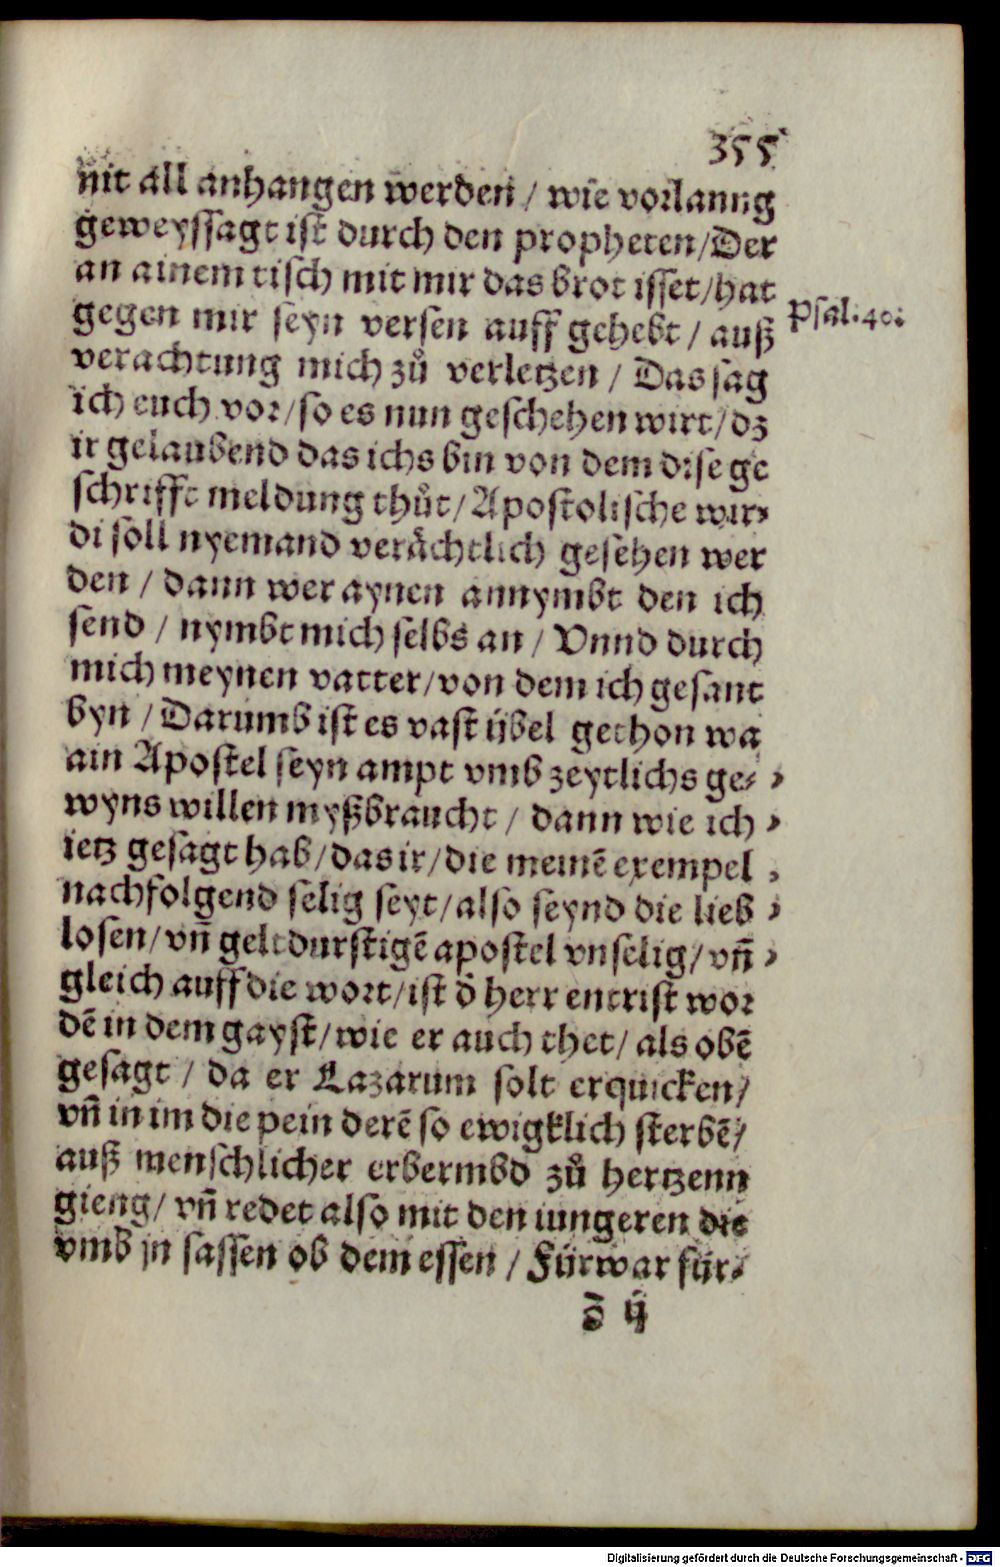 355
nit all anhangen werden / wie vorlanng
geweyssagt ist durch den propheten/Der
an ainem tisch mit mir das brot isset/hat
gegen mir seyn versen auff gehebt / auß
Psal.40.
verachtung mich zů verletzen / Das sag
ich euch vor/so es nun geschehen wirt/dz
ir gelaubend das ichs bin von dem dise ge
schrifft meldung thůt/Apostolische wir-
di soll nyemand verächtlich gesehen wer
den / dann wer aynen annymbt den ich
send / nymbt mich selbs an / Vnnd durch
mich meynen vatter/von dem ich gesant
byn / Darumb ist es vast übel gethon wa
ain Apostel seyn ampt vmb zeytlichs ge-
wyns willen myßbraucht / dann wie ich
ietz gesagt hab/das ir/die meinē exempel
nachfolgend selig seyt/also seynd die lieb
losen/vn̄ gelt durstigē apostel vnselig/vn̄
gleich auff die wort/ist d̄ herr entrist wor
dē in dem gayst/wie er auch thet/als obē
gesagt / da er Lazarum solt erquicken/
vn̄ in im die pein derē so ewigklich sterbē/
auß menschlicher erbermbd zů hertzenn
gieng/ vn̄ redet also mit den iungeren die
vmb jn sassen ob dem essen / Fürwar für-
d̄ ij
Digitalisierung gefördert durch die Deutsche Forschungsgemeinschaft - DFG